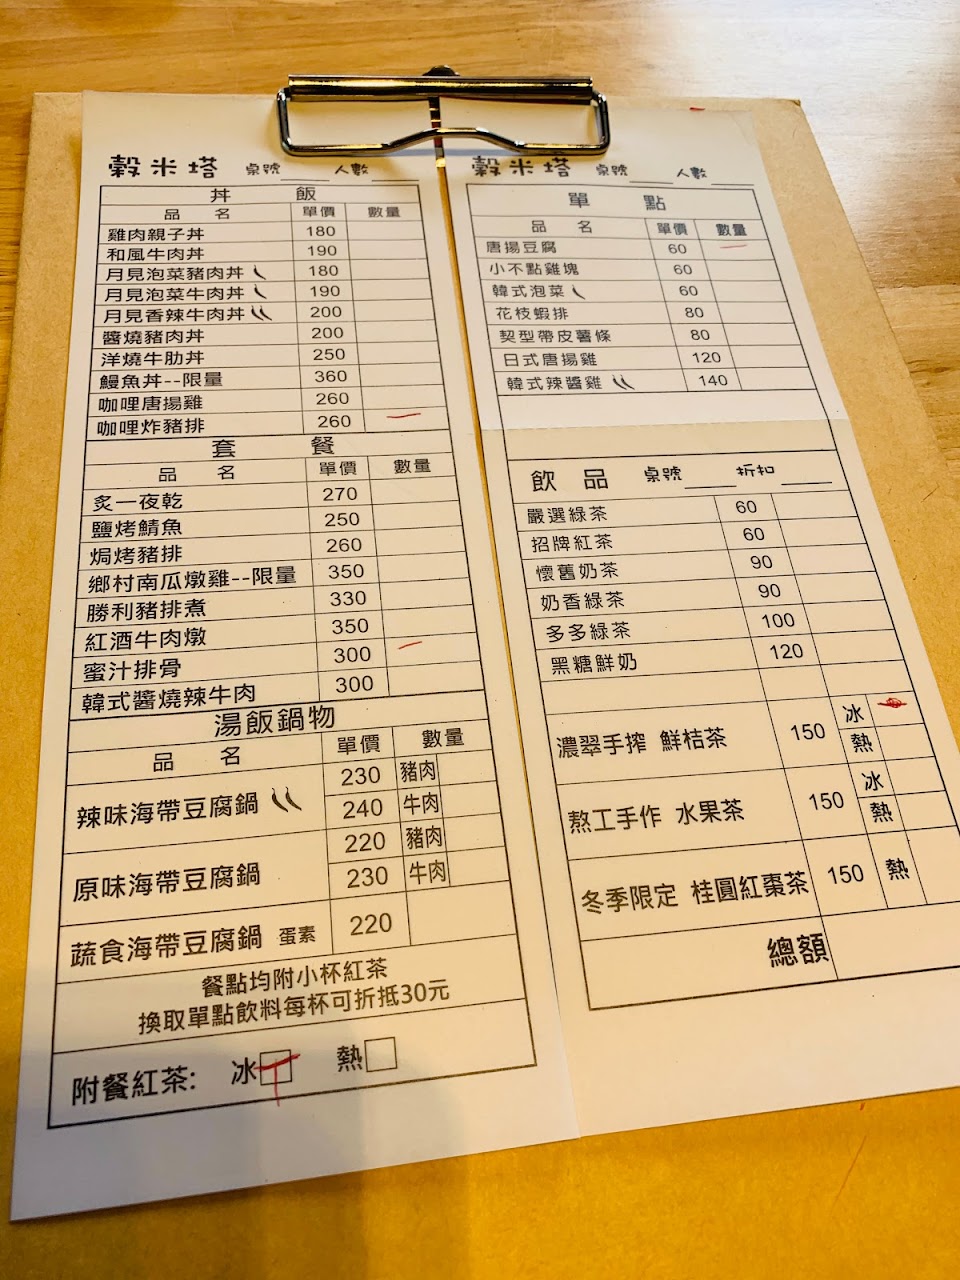 穀米塔 桌號____ 人數____
丼 飯
品 名 單價 數量
雞肉親子丼 180
和風牛肉丼 190
月見泡菜豬肉丼 180
月見泡菜牛肉丼 190
月見香辣牛肉丼 200
醬燒豬肉丼 200
洋燒牛肋丼 250
鰻魚丼--限量 360
咖哩唐揚雞 260
咖哩炸豬排 260
套 餐
品 名 單價 數量
炙一夜乾 270
鹽烤鯖魚 250
焗烤豬排 260
鄉村南瓜燉雞--限量 350
勝利豬排煮 330
紅酒牛肉燉 350
蜜汁排骨 300
韓式醬燒辣牛肉 300
湯飯鍋物
品 名 單價 數量
辣味海帶豆腐鍋 230 豬肉
240 牛肉
原味海帶豆腐鍋 220 豬肉
230 牛肉
蔬食海帶豆腐鍋 蛋素 220
餐點均附小杯紅茶
換取單點飲料每杯可折抵30元
附餐紅茶: 冰□ 熱□
穀米塔 桌號____ 人數____
單 點
品 名 單價 數量
唐揚豆腐 60
小不點雞塊 60
韓式泡菜 60
花枝蝦排 80
契型帶皮薯條 80
日式唐揚雞 120
韓式辣醬雞 140
飲 品 桌號____ 折扣____
嚴選綠茶 60
招牌紅茶 60
懷舊奶茶 90
奶香綠茶 90
多多綠茶 100
黑糖鮮奶 120
濃翠手搾 鮮桔茶 150 冰
熱
熬工手作 水果茶 150 冰
熱
冬季限定 桂圓紅棗茶 150 熱
總額